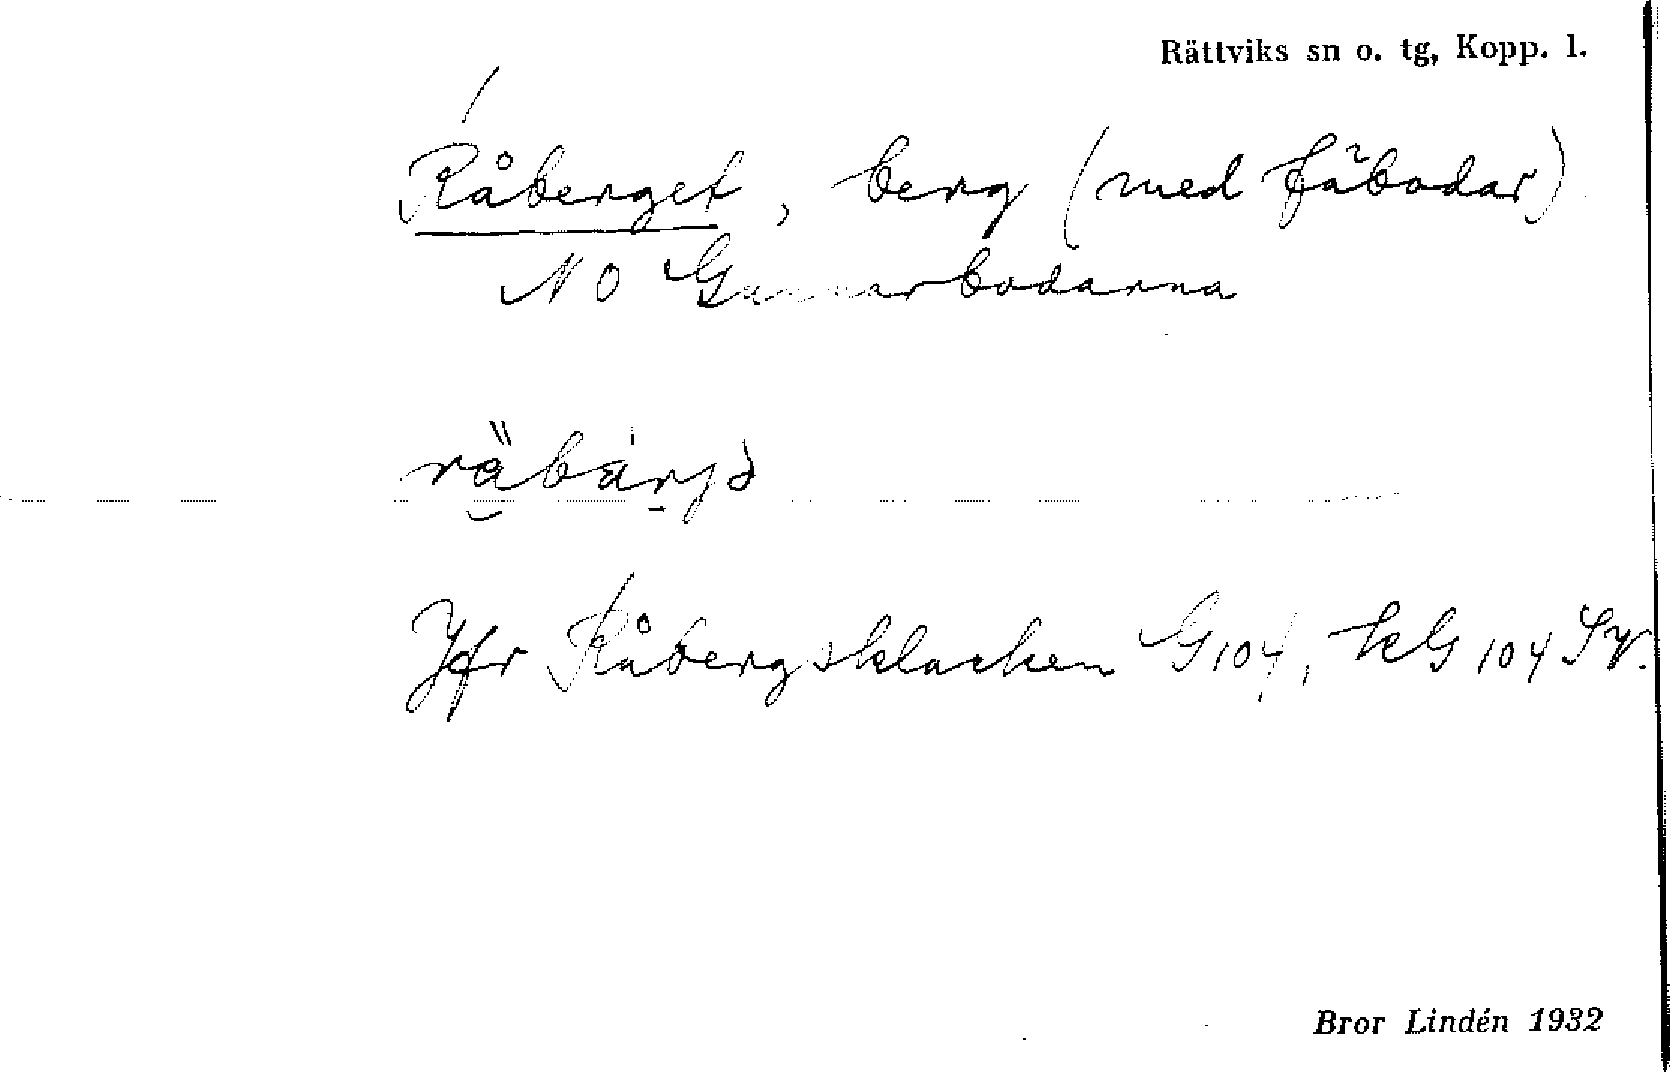 Rättviks sn o. tg, Kopp. l.
Råberget, berg (med fäbodar)
NO Gunnarbodarna
Jfr Råbergsklacken G104, kG 104 Sv.
Bror Lindén 1932